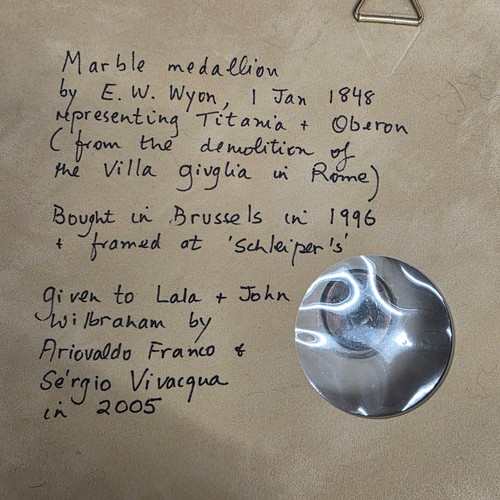 Marble medallion
by E. W. Wyon, 1 Jan 1848
representing Titania + Oberon
(from the demolition of
the Villa Giuglia in Rome)
Bought in Brussels in 1996
+ framed at 'Schleiper's'
given to Lala + John
Wilbraham by
Ariovaldo Franco &
Sérgio Vivacqua
in 2005